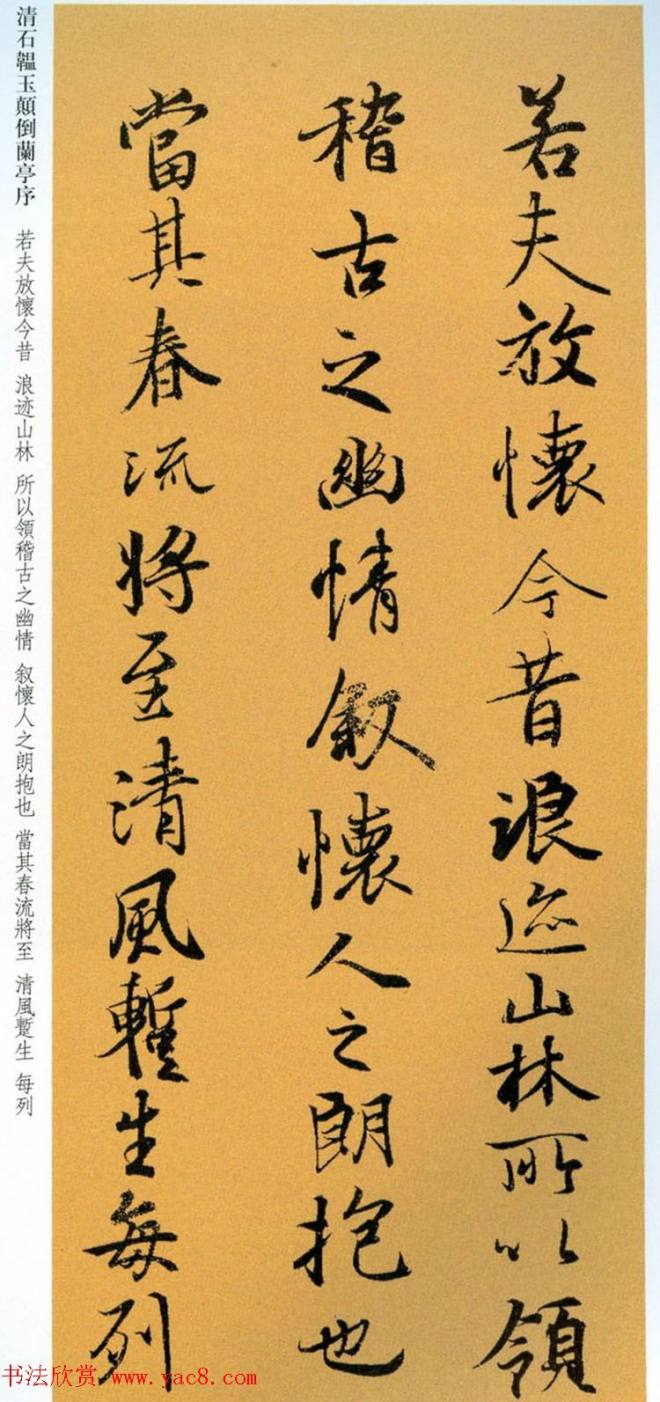 若夫放懷今昔浪迹山林所以領
稽古之幽情叙懷人之朗抱也
當其春流將至清風蹔生每列
清石韞玉顛倒蘭亭序 若夫放懷今昔 浪迹山林 所以領稽古之幽情 叙懷人之朗抱也 當其春流將至 清風蹔生 每列
书法欣赏 www.yac8.com